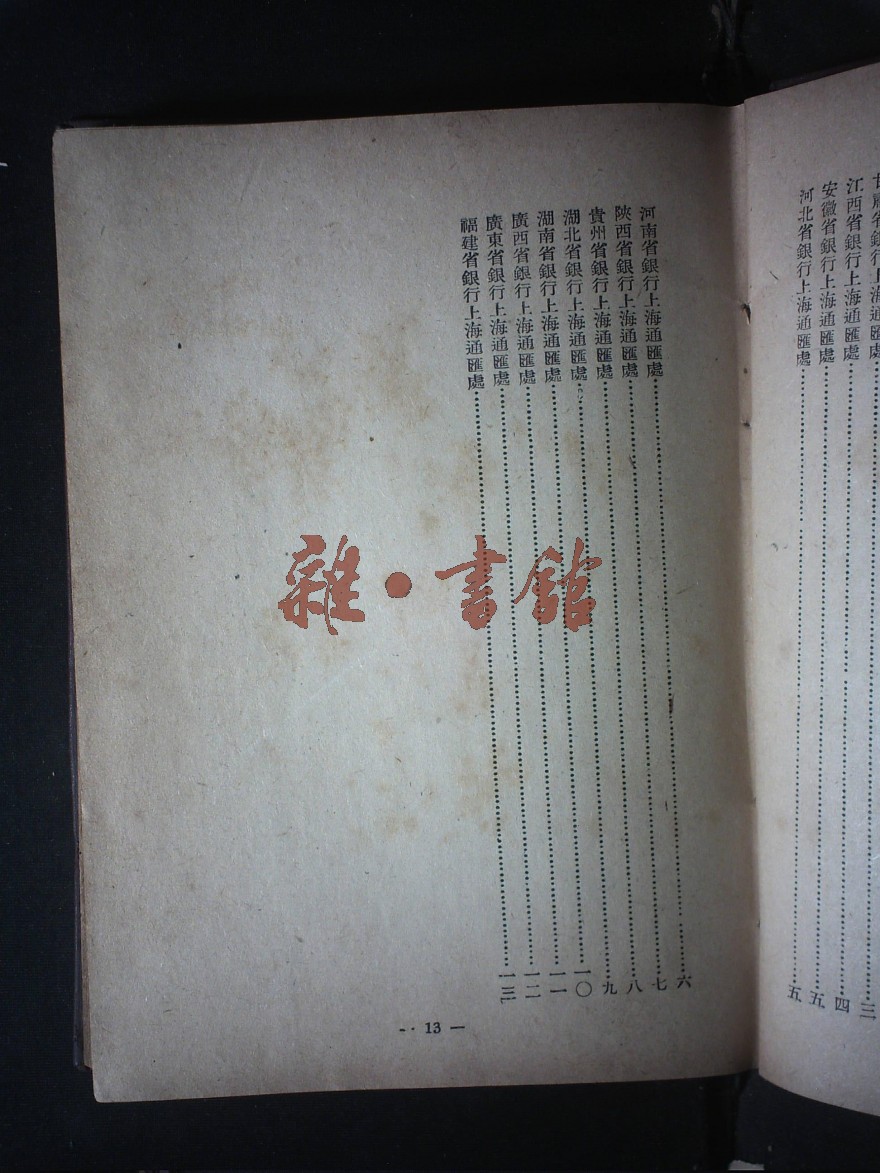 甘肅省銀行上海通匯處……三
江西省銀行上海通匯處……四
安徽省銀行上海通匯處……五
河北省銀行上海通匯處……五
河南省銀行上海通匯處……六
陝西省銀行上海通匯處……七
貴州省銀行上海通匯處……八
湖北省銀行上海通匯處……九
湖南省銀行上海通匯處……一〇
廣西省銀行上海通匯處……一一
廣東省銀行上海通匯處……一二
福建省銀行上海通匯處……一三
— 13 —
雜•書館